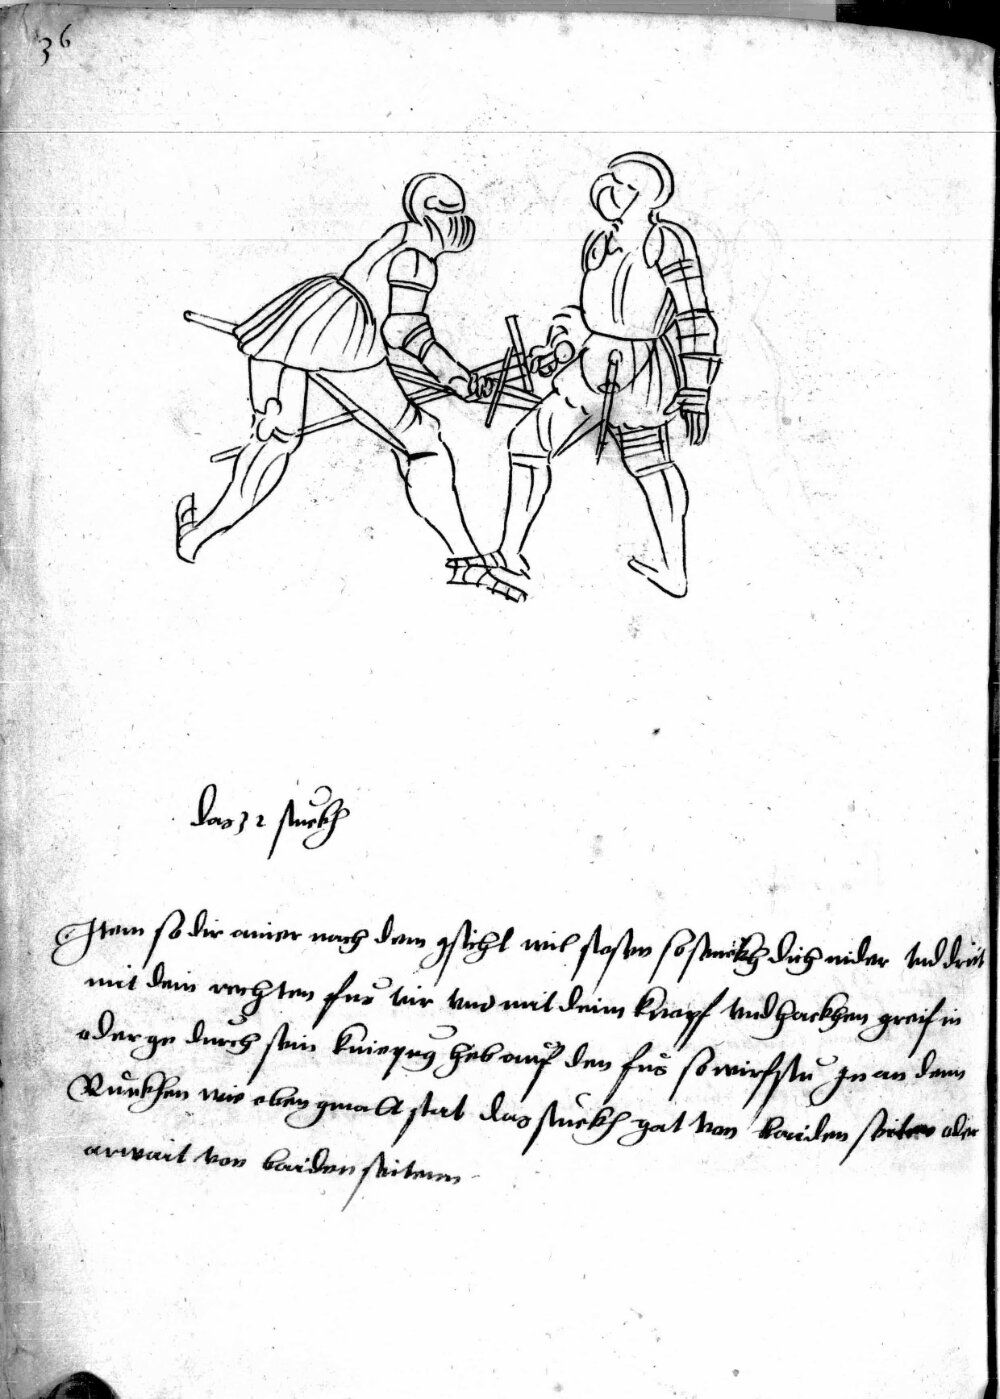 36
das 32 stuckh
Item so dir ainer nach dem gsicht wil stosen so struckh dich nider vnd drit
mit dein rechten fus vir vnd mit deim knopf vnd hackhen greif in
oder ge durch sein kniepug heb auf den fus so wirfstu jn an denn
Ruckhen wie oben gmalt stat das stuckh gat von baiden seiten oder
arwait von baiden seitenn